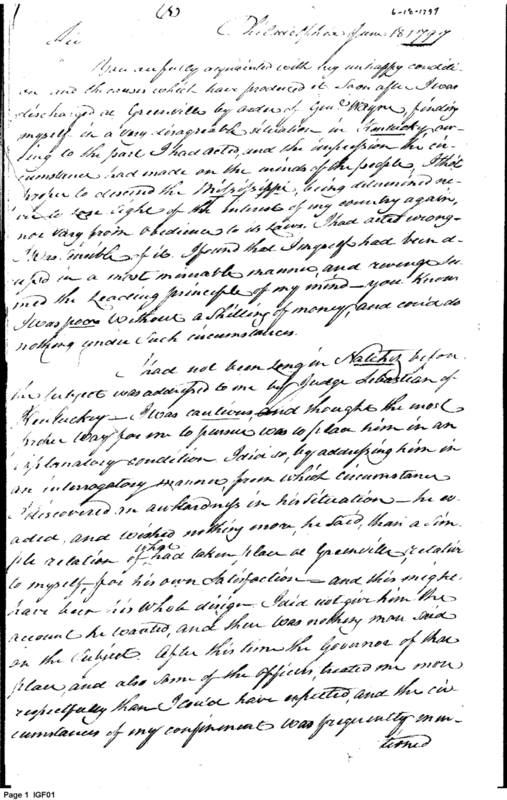 (5)
6-18-1797
Philadelphia June 18 1797
Sir
You are fully acquainted with my unhappy conditi-
on and the causes which have produced it. Soon after I was
discharged at Greenville by order of Genl. Wayne, finding
myself in a very disagreable situation in Kentucky ow-
ing to the part I had acted, and the impression the cir-
cumstance had made on the minds of the people, I thot
proper to descend the Mississippi, being determined ne-
ver to lose sight of the interest of my country again,
nor vary from obedience to its laws. I had acted wrong-
I was sensible of it. I found that I myself had been a-
bused in a most miserable manner, and revenge for-
med the leading principle of my mind — you know
I was poor without a shilling of money, and could do
nothing under such circumstances.
I had not been long in Natchez before
the subject was addressed to me by Judge Sebastian of
Kentuckey — I was cautious, and thought the most
proper way for me to pursue was to place him in an
explanatory condition. I did so, by addressing him in
an interrogatory manner, from which circumstance
I discovered an awkardness in his situation — he ev-
aded, and wished nothing more he said, than a sim-
ple relation of what had taken place at Greenville, relative
to myself, for his own satisfaction — and this might
have been his whole design — I did not give him the
account he wanted, and there was nothing more said
on the subject. After this time the Governor of that
place, and also some of the officers, treated me more
respectfully than I could have expected, and the cir-
cumstances of my confinement was frequently men-
tioned
Page 1 IGF01